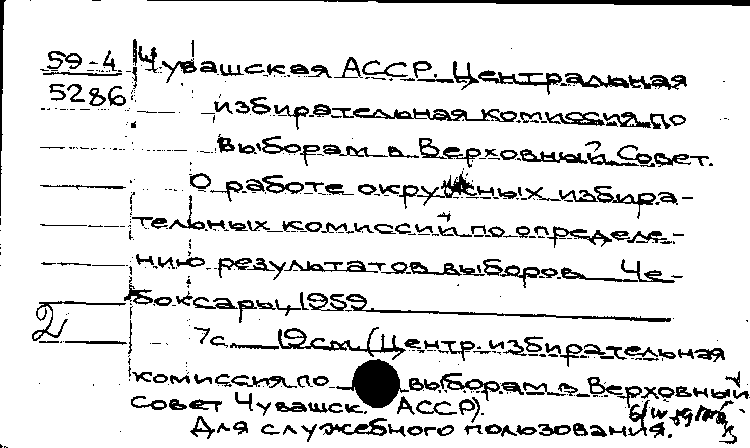 59-4
5286
Чувашская АССР. Центральная
избирательная комиссия по
выборам в Верховный Совет.
О работе окружных избира-
тельных комиссий по определе-
нию результатов выборов. Че-
боксары, 1959.
2
7с. 19см. (Центр. избирательная
комиссия по выборам в Верховный
совет Чувашск. АССР).
Для служебного пользования.